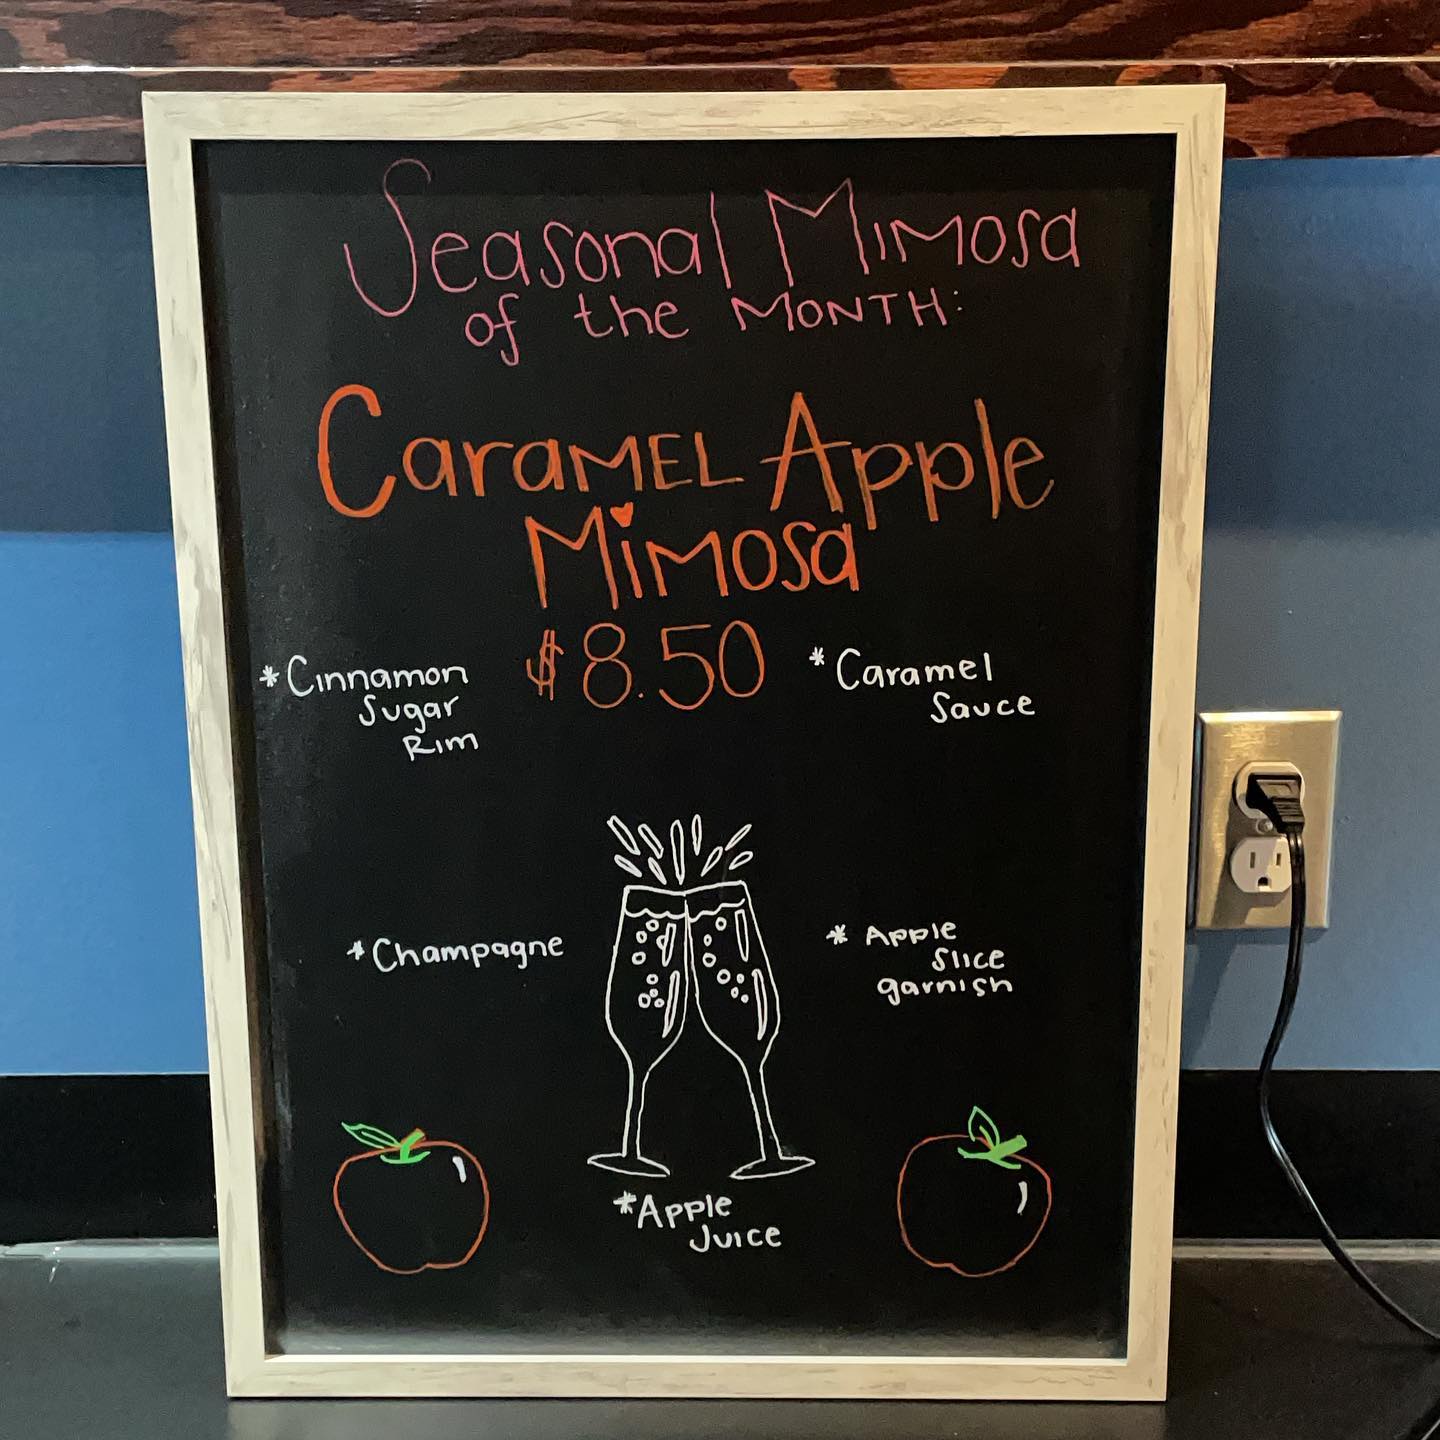 Seasonal Mimosa
of the Month:
Caramel Apple
Mimosa
$8.50
*Cinnamon
Sugar
Rim
*Caramel
Sauce
*Champagne
*Apple
Slice
garnish
*Apple
Juice